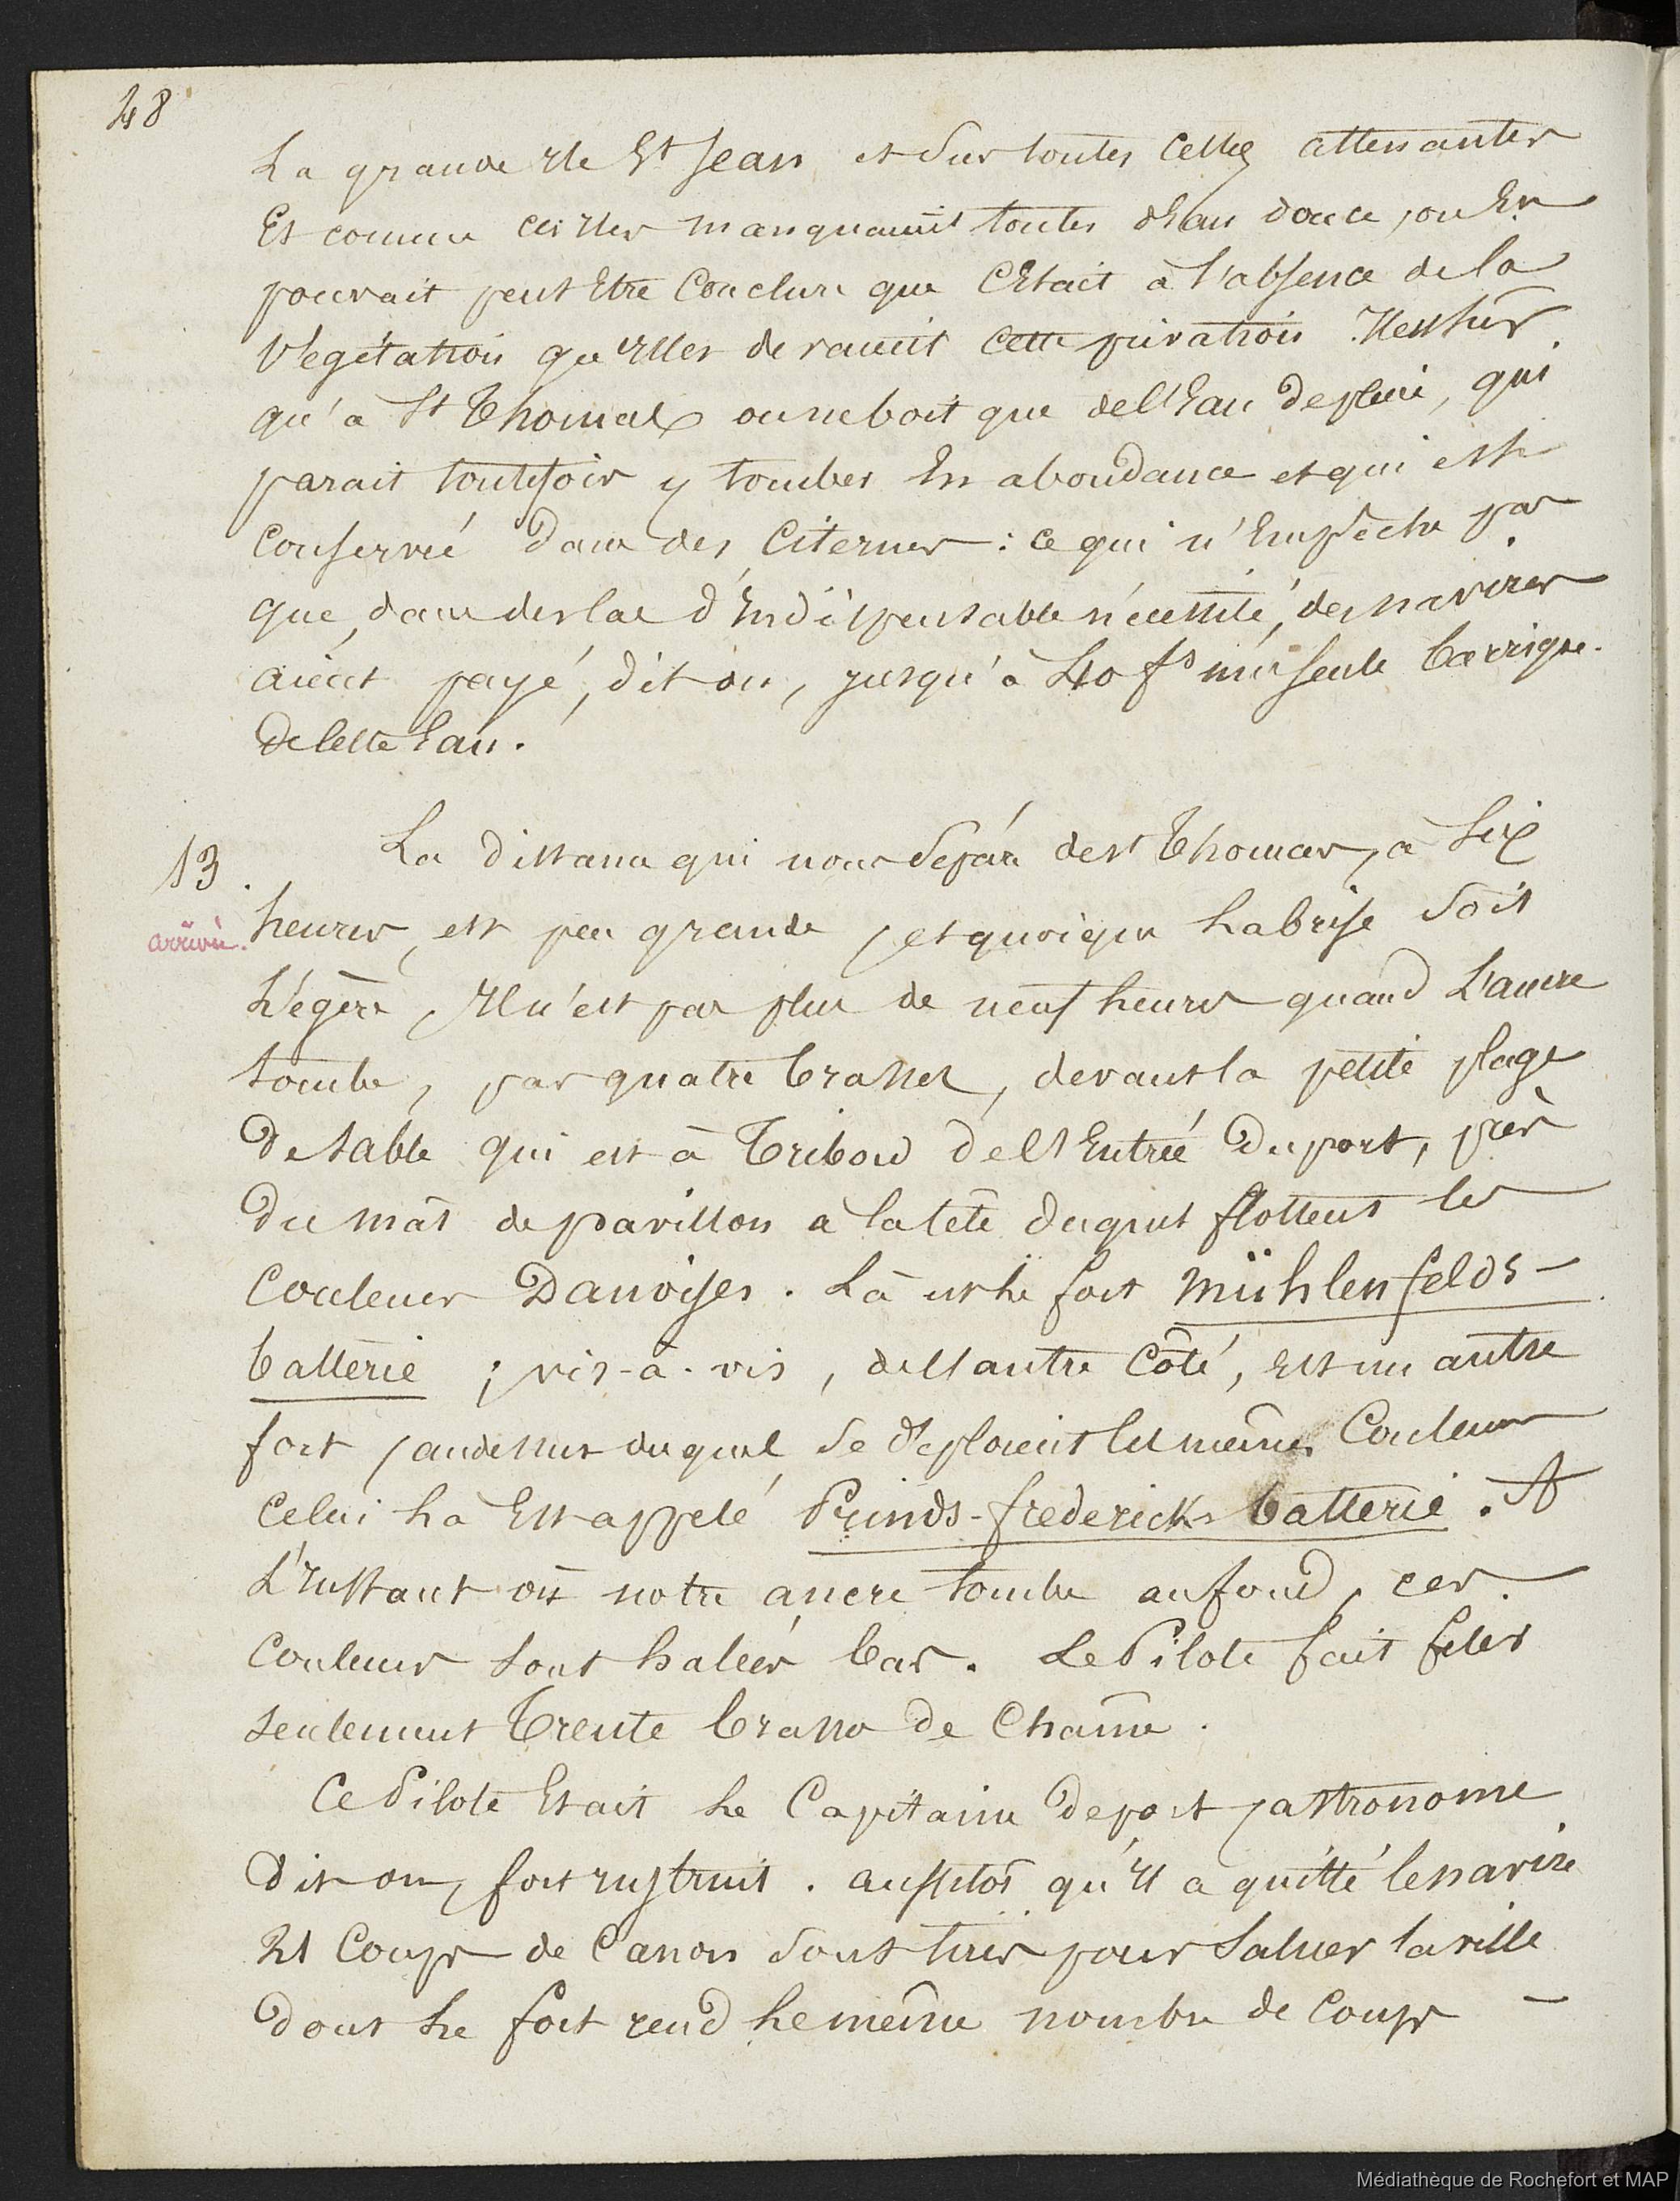 48
La grande Ile St Jean et sur toutes celles attenantes
Et comme ces Iles manquaient toutes d'Eau douce, on En
pouvait peut Etre Conclure que C'Etait à l'absence de la
Végétation qu'Elles devaient cette privation. Il est sûr
qu'à St Thomas on ne boit que de l'Eau de pluie, qui
parait toutefois y tomber En abondance et qui est
conservée dans des Citernes : ce qui n'Empêche pas
que, dans des cas d'Indispensable nécessité, des navires
aient payé, dit on, jusqu'à 40 fs une seule barrique
de cette Eau.
13.
arrivée.
La distance qui nous sépare de St Thomas, à Six
heures, est peu grande, et quoique la brise soit
Légère, Il n'est pas plus de neuf heures quand L'ancre
tombe, par quatre brasses, devant la petite plage
de sable qui est à Tribord de l'Entrée du port, près
du mât de pavillon à la tête duquel flottent les
Couleurs Danoises. Là est le fort Mühlenfelds-
batterie ; vis-à-vis, de l'autre Côté, Est un autre
fort, au dessus duquel se déploient les mêmes Couleurs
Celui là Est appelé Prinds-frederick-batterie. A
L'Instant où notre ancre tombe au fond, ces
Couleurs sont halées bas. Le Pilote fait filer
seulement Trente brasses de Chaîne.
Ce Pilote Etait le Capitaine de port, astronome
dit on, fort Instruit. aussitôt qu'Il a quitté le navire
21 Coups de Canon sont tirés pour Saluer la ville
dont le fort rend le même nombre de Coups –
Médiathèque de Rochefort et MAP